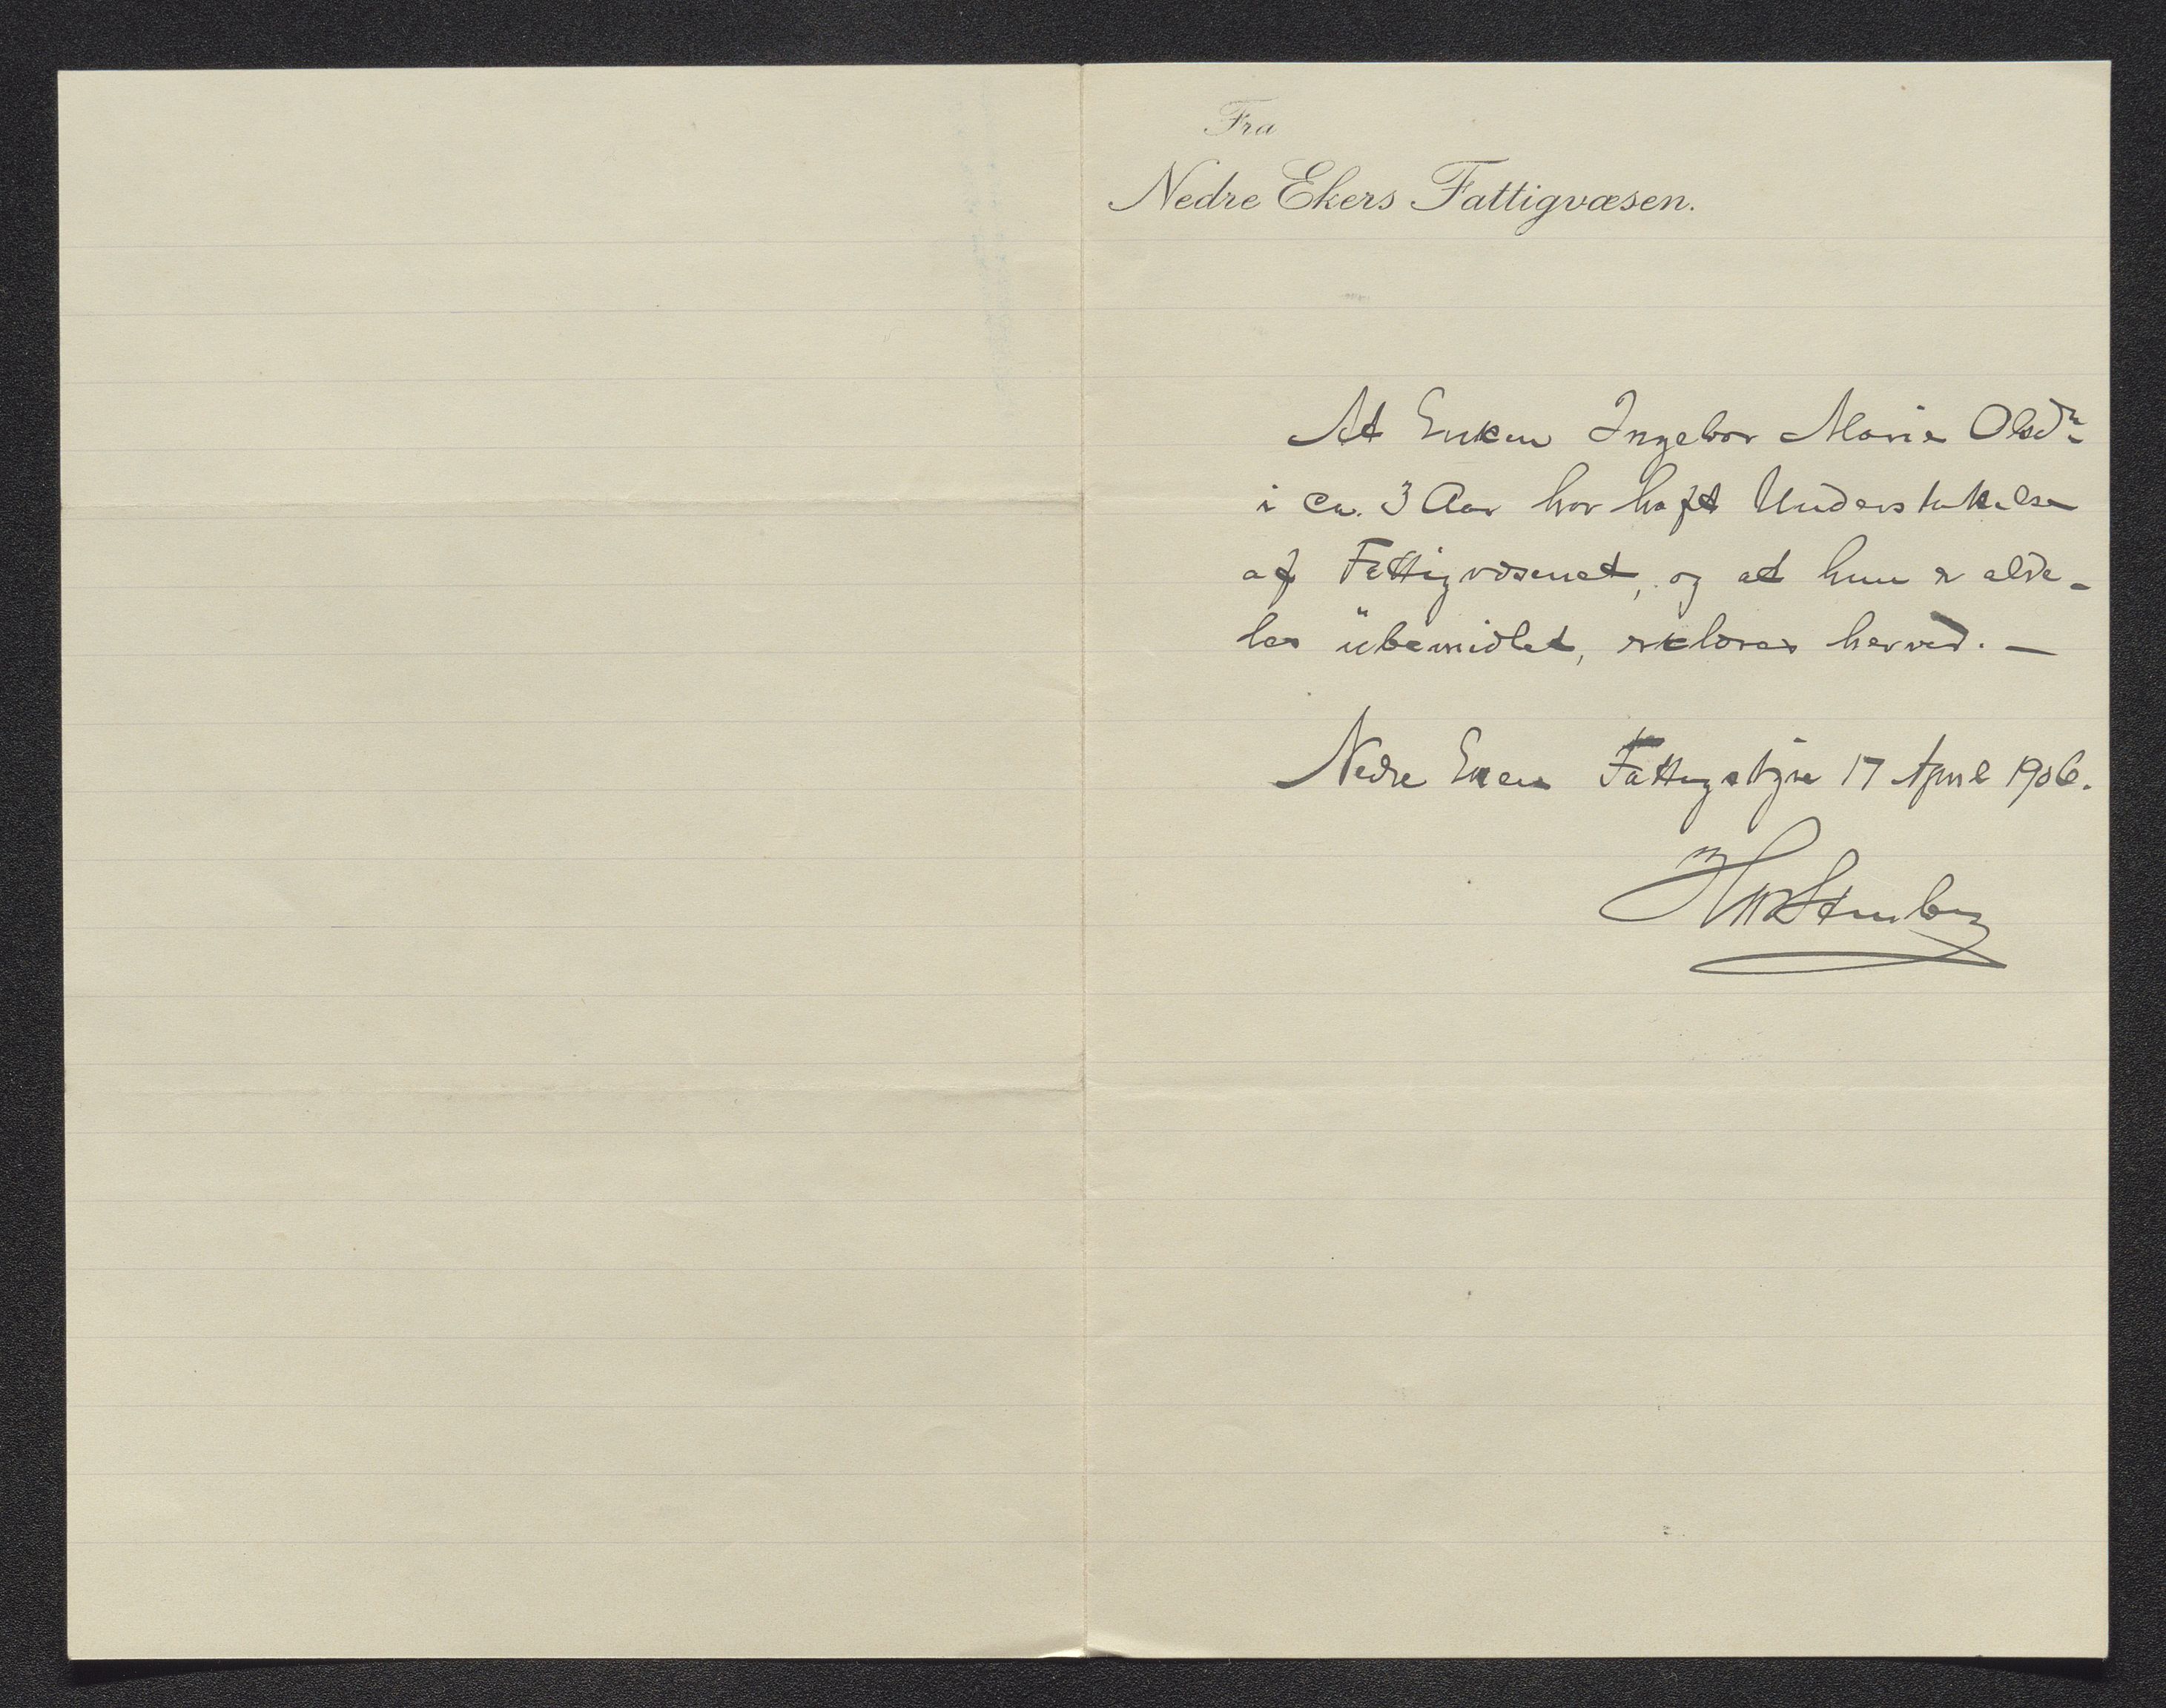 Fra
Nedre Ekers Fattigvæsen.
At Enken Ingebor Marie Olsdtr
i ca. 3 Aar har haft Understøttelse
af Fattigvæsenet, og at hun er alde-
les ubemidlet, erklæres herved. —
Nedre Ekers Fattigstyre 17 April 1906.